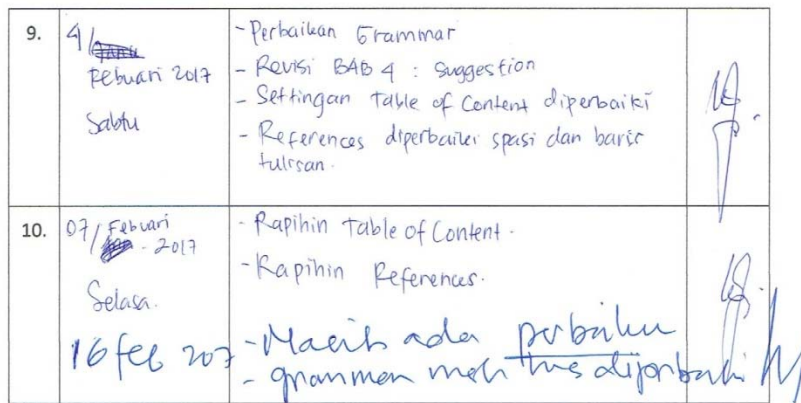 9.
4/
Pebuari 2017
Sabtu
- Perbaikan Grammar
- Revisi BAB 4 : suggestion
- Settingan Table of Content diperbaiki
- References diperbaiki spasi dan baris
tulisan.
10.
07/Febuari
- 2017
Selasa.
- Rapihin Table of Content.
- Rapihin References.
16 feb 207
- Masih ada perbaikan
- grammar diperbaiki